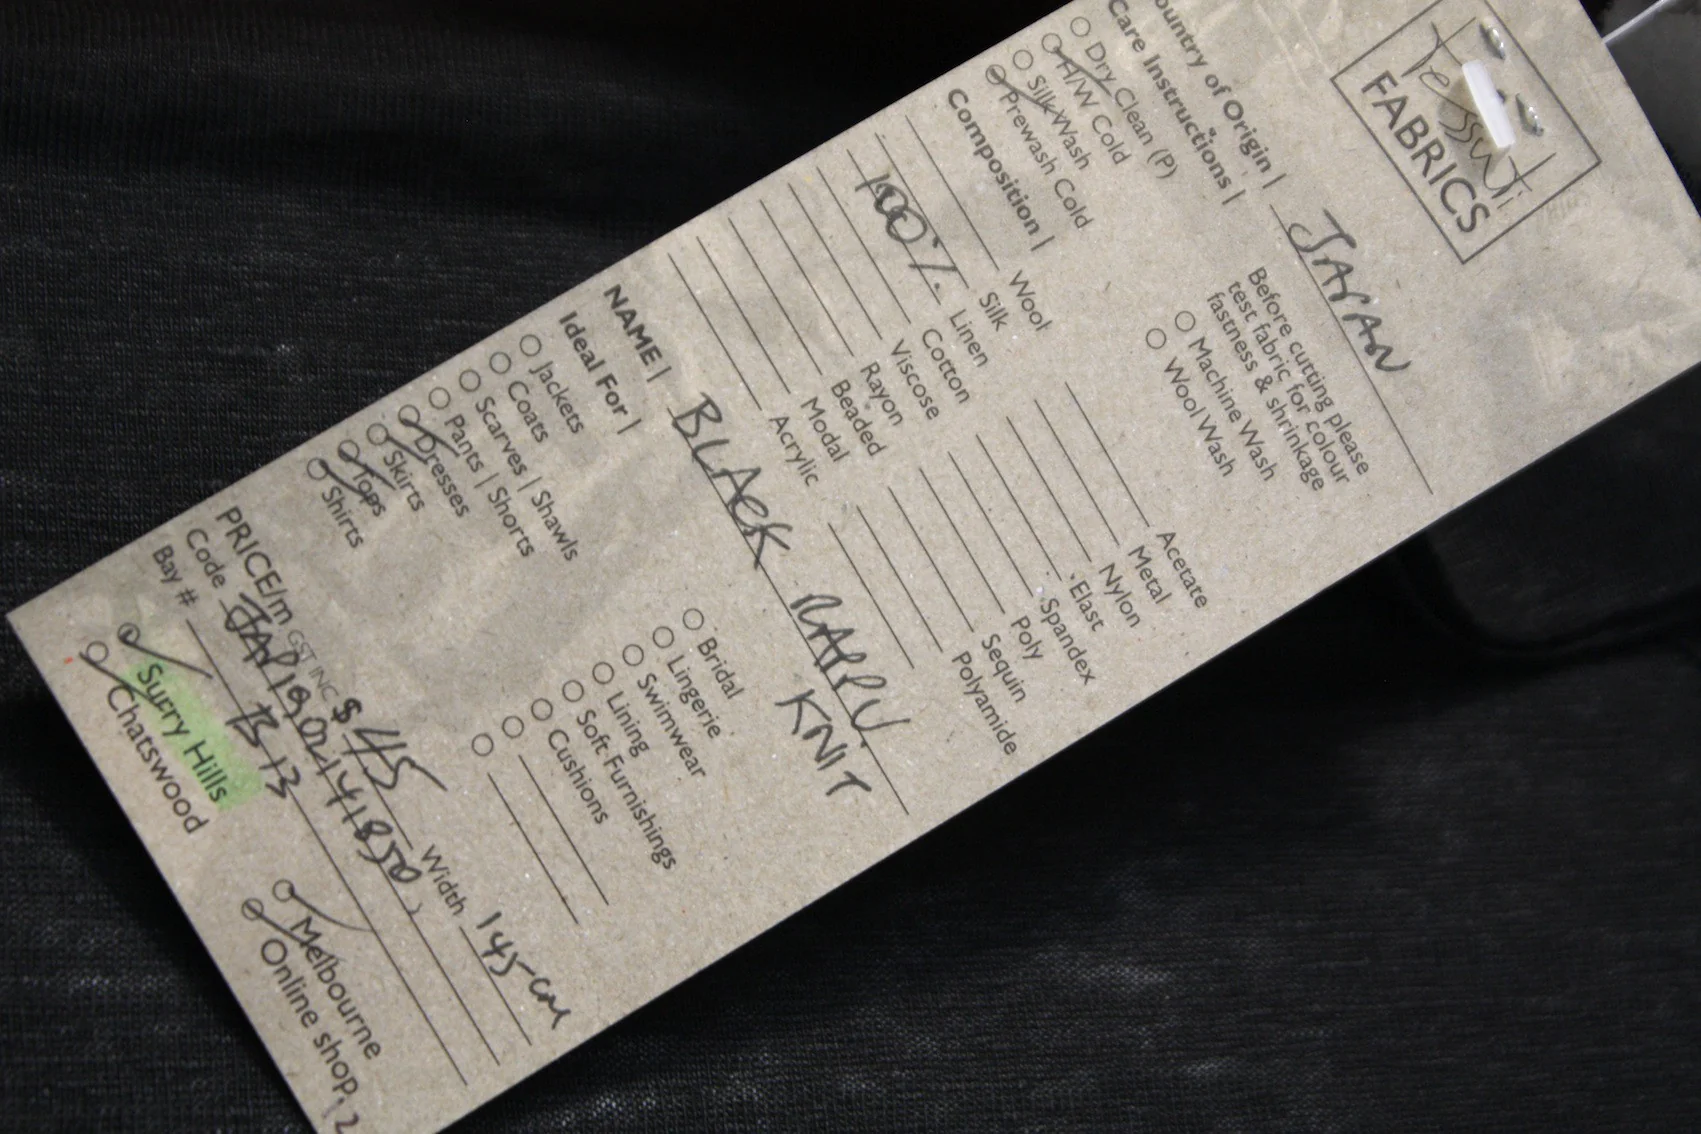 Tessuti
FABRICS
ountry of Origin | JAPAN
Care Instructions |
Dry Clean (P)
H/W Cold
Silk Wash
Prewash Cold
Before cutting please
test fabric for colour
fastness & shrinkage
Machine Wash
Wool Wash
Composition |
Wool
Silk
100% Linen
Cotton
Viscose
Rayon
Beaded
Modal
Acrylic
Acetate
Metal
Nylon
Elast
Spandex
Poly
Sequin
Polyamide
NAME | BLACK RAPPU
KNIT
Ideal For |
Jackets
Coats
Scarves | Shawls
Pants | Shorts
Dresses
Skirts
Tops
Shirts
Bridal
Lingerie
Swimwear
Lining
Soft Furnishings
Cushions
PRICE/m GST INC $45 Width 145cm
Code
Bay # B13
Surry Hills
Chatswood
Melbourne
Online shop